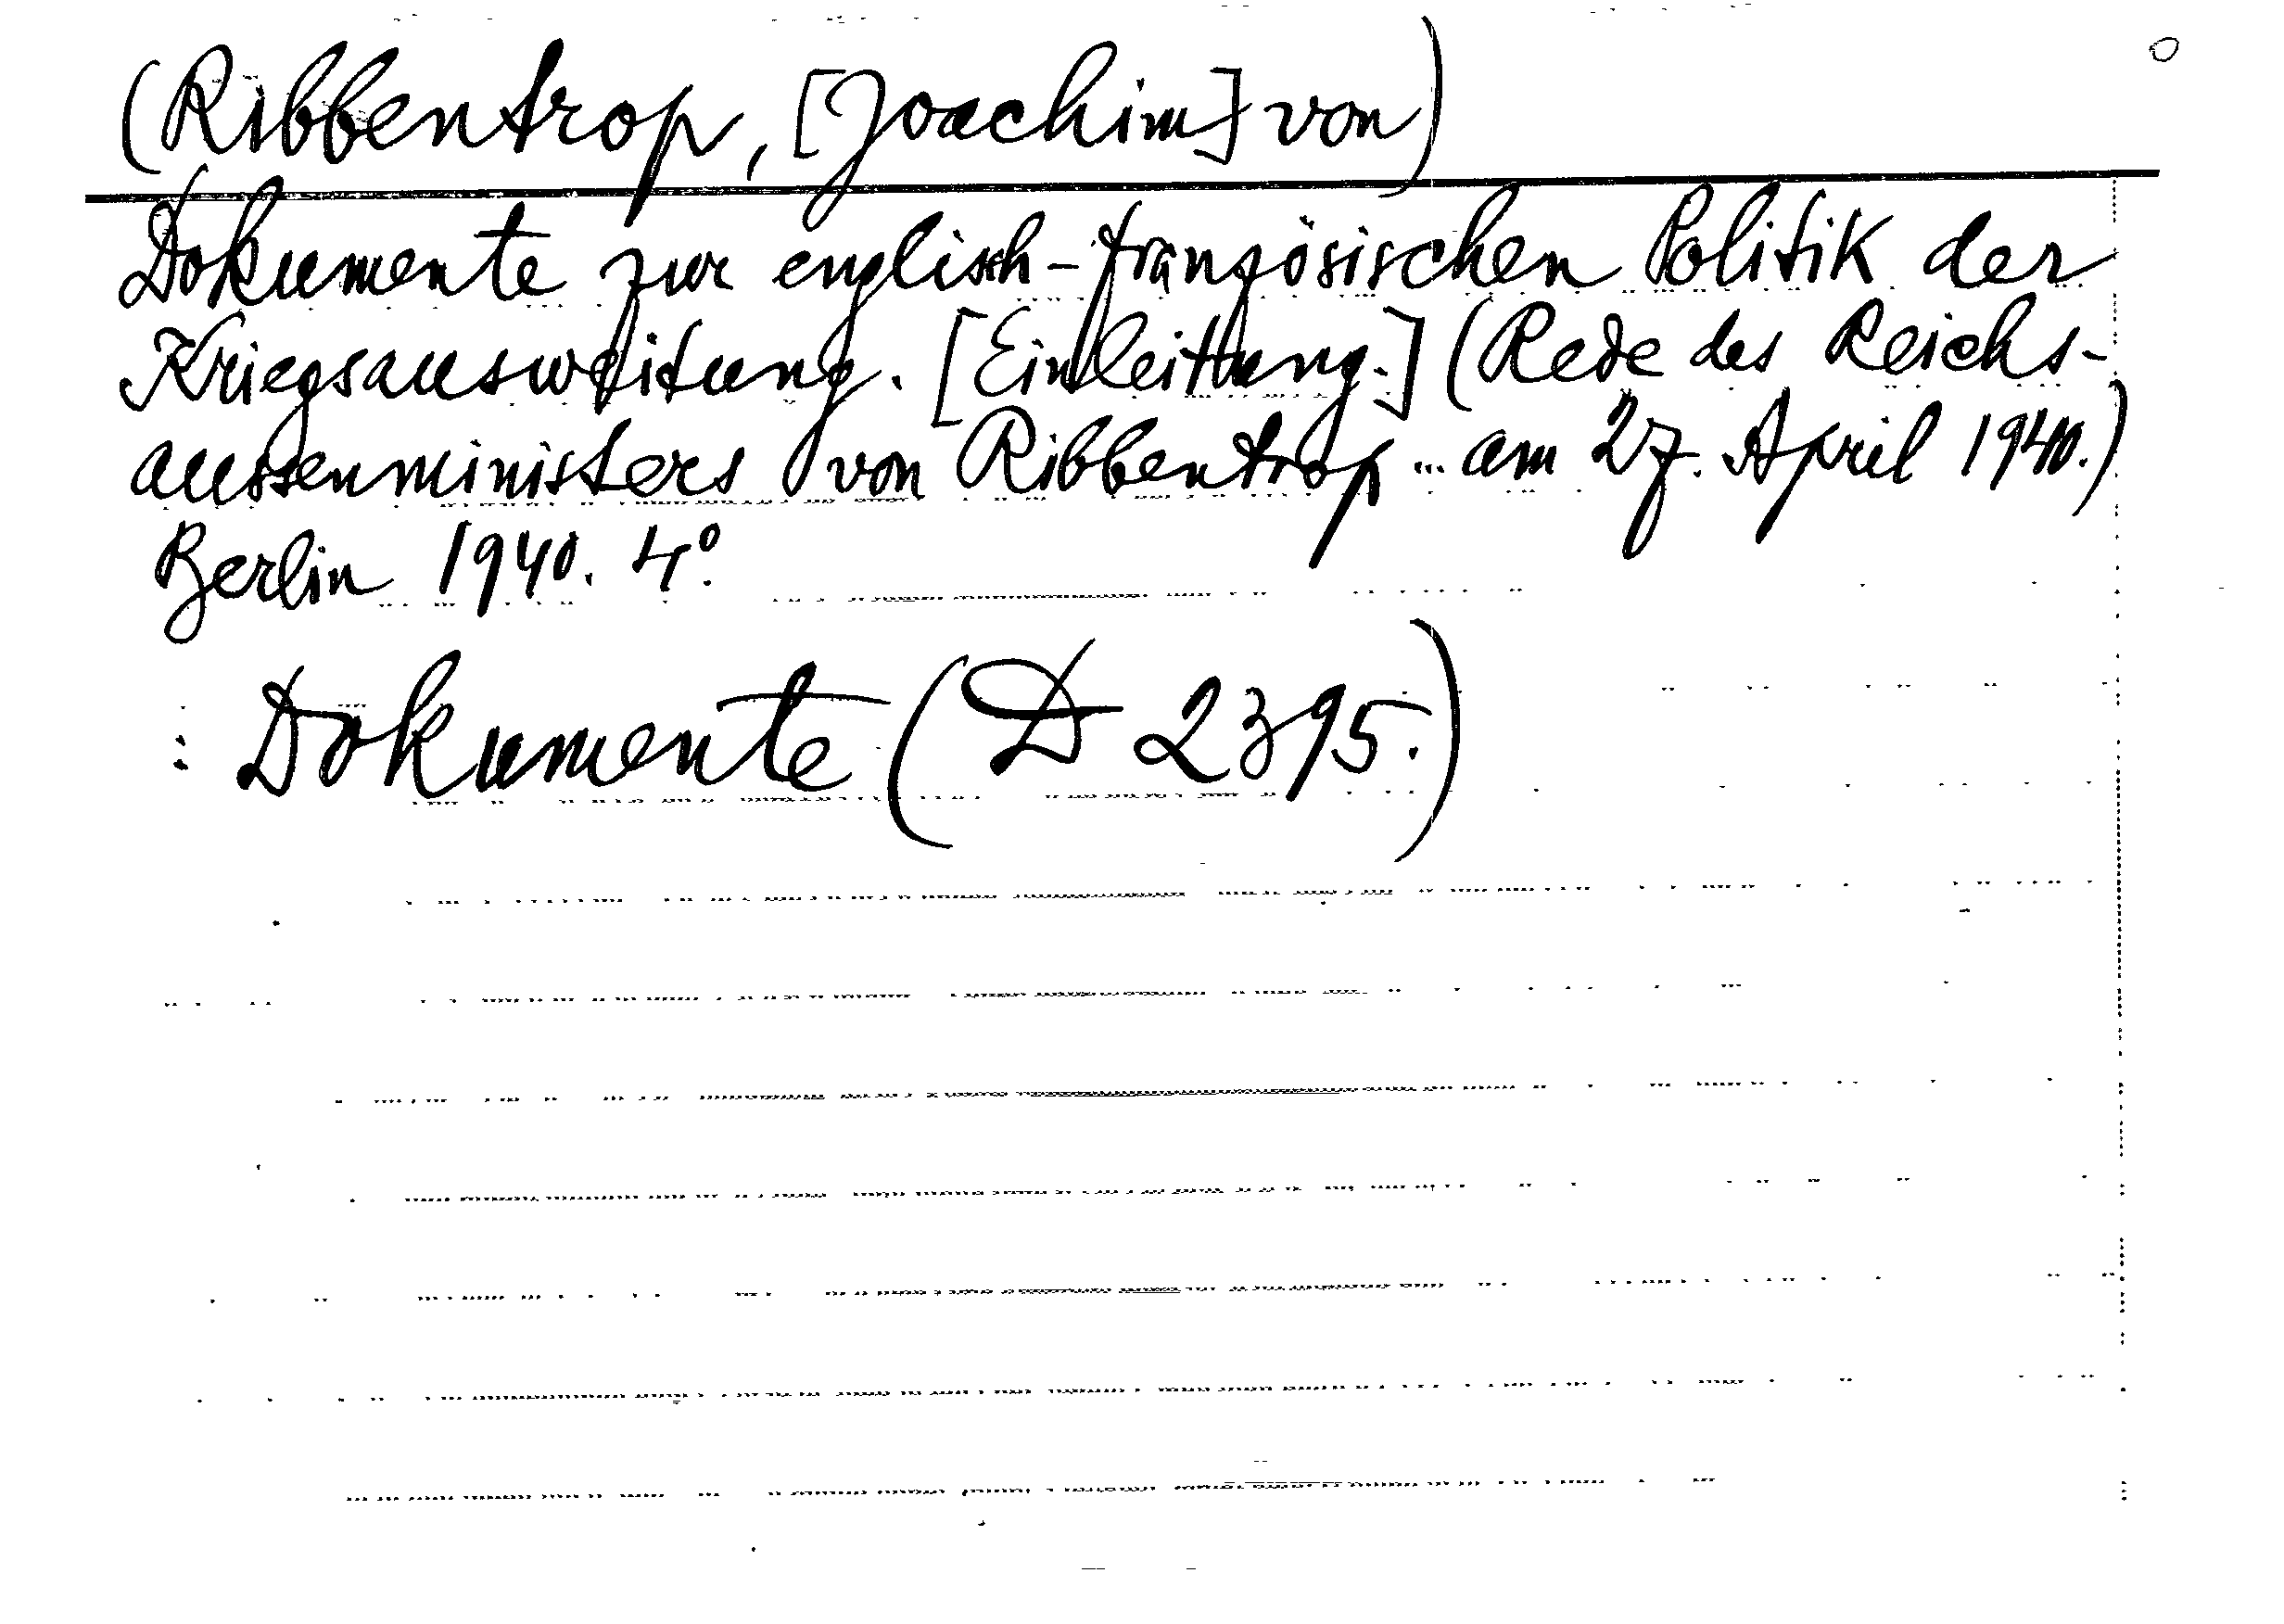 (Ribbentrop, [Joachim] von)
Dokumente zur englisch-französischen Politik der
Kriegsausweitung. [Einleitung.] (Rede des Reichs-
aussenministers von Ribbentrop ... am 27. April 1940.)
Berlin 1940. 4°.
: Dokumente (D 2395.)